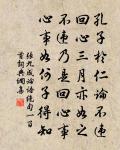 孔子於仁論不違
回心三月亦如之
不違乃是回心事
心事如何子得知
張九成論語絕句一百
首 詞典